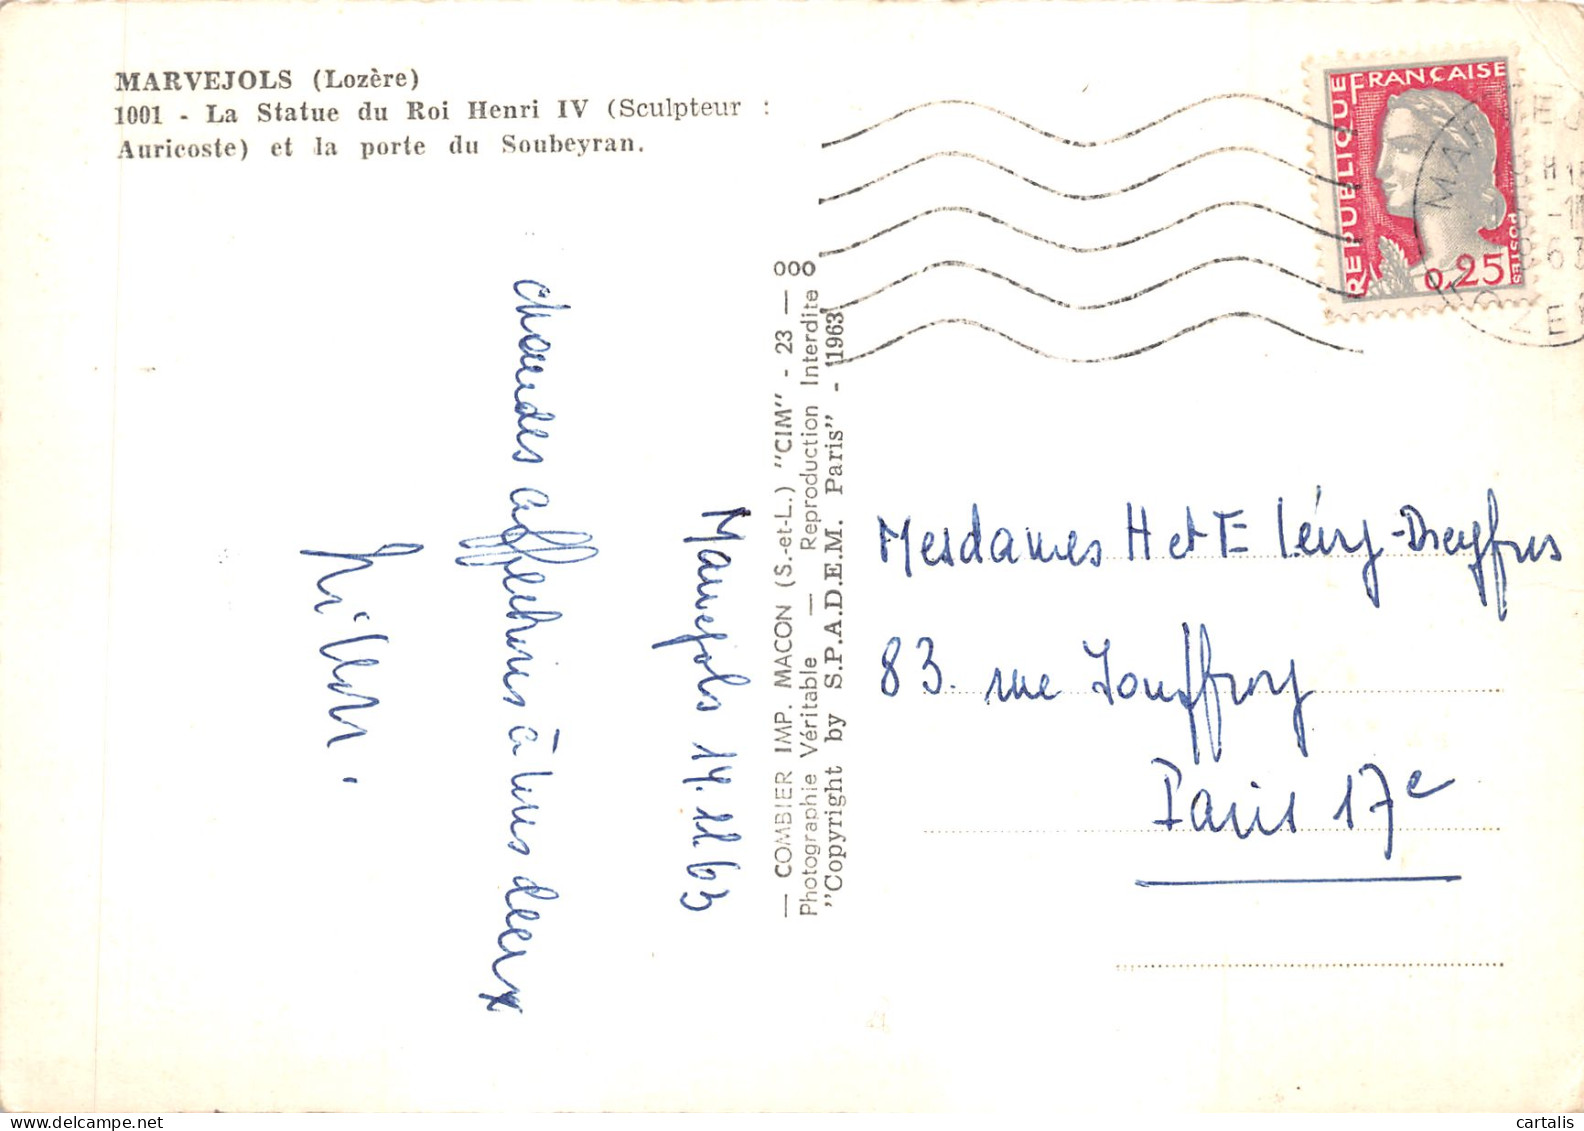 MARVEJOLS (Lozère)
1001 - La Statue du Roi Henri IV (Sculpteur :
Auricoste) et la porte du Soubeyran.
Marvejols 14.11.63
chaudes affections à tous deux
— COMBIER IMP. MACON (S.-et-L.) "CIM" - 23 — 000
Photographie Véritable — Reproduction Interdite
"Copyright by S.P.A.D.E.M. Paris" - 1963
REPUBLIQUE FRANÇAISE
POSTES
0,25
Mesdames H et E Lévy-Dreyfus
83. rue Jouffroy
Paris 17e
cartalis